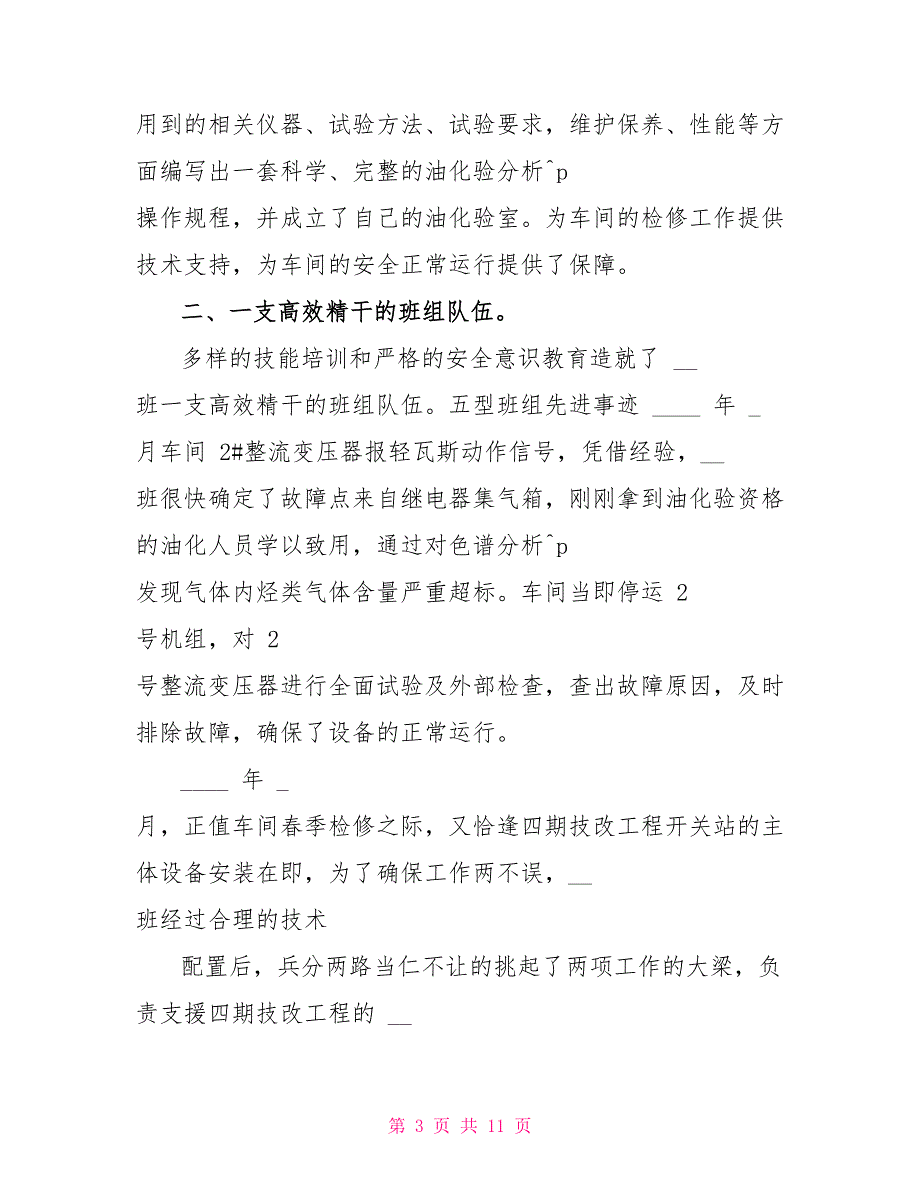 用到的相关仪器、试验方法、试验要求，维护保养、性能等方
面编写出一套科学、完整的油化验分析^p
操作规程，并成立了自己的油化验室。为车间的检修工作提供
技术支持，为车间的安全正常运行提供了保障。
二、一支高效精干的班组队伍。
多样的技能培训和严格的安全意识教育造就了 __
班一支高效精干的班组队伍。五型班组先进事迹 ____ 年 _
月车间 2#整流变压器报轻瓦斯动作信号，凭借经验，__
班很快确定了故障点来自继电器集气箱，刚刚拿到油化验资格
的油化人员学以致用，通过对色谱分析^p
发现气体内烃类气体含量严重超标。车间当即停运 2
号机组，对 2
号整流变压器进行全面试验及外部检查，查出故障原因，及时
排除故障，确保了设备的正常运行。
____ 年 _
月，正值车间春季检修之际，又恰逢四期技改工程开关站的主
体设备安装在即，为了确保工作两不误，__
班经过合理的技术
配置后，兵分两路当仁不让的挑起了两项工作的大梁，负
责支援四期技改工程的 __
第 3 页 共 11 页